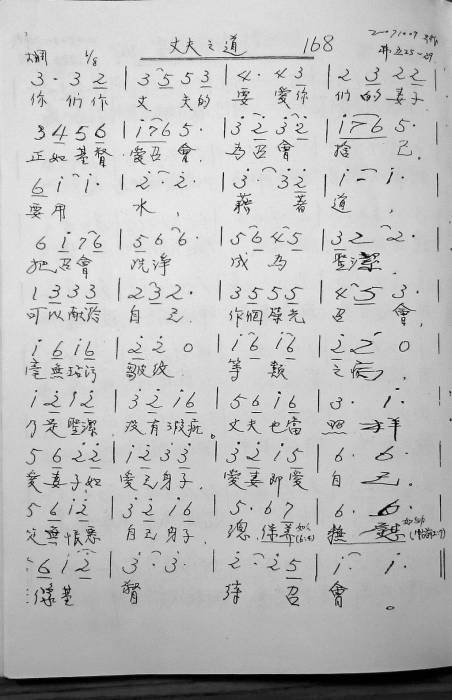 丈夫之道 168
大調 6/8
3 · 3 2 | 3 5 5 3 | 4 · 4 3 | 2 3 2 2
你們作 丈夫的 要愛你 們的妻子
3 4 5 6 | i 7 6 5 · | 3 2 3 2 | i 7 6 5 ·
正如基督 愛召會, 為召會 捨己,
6 i i · | 2 · 2 · | 3 · 3 2 | i - i ·
要用 水, 藉著 道,
6 i 7 6 | 5 6 6 · | 5 6 4 5 | 3 2 2 ·
把召會 洗淨 成為 聖潔.
1 3 3 3 | 2 3 2 · | 3 5 5 5 | 4 5 3 ·
可以獻給 自己 作個榮光 召會,
i 6 i 6 | 2 2 0 | i 6 i 6 | 2 2 0
毫無玷污 皺紋 等類 之病,
i 2 1 2 | 3 2 i 6 | 5 6 i 6 | 3 · 1 ·
乃是聖潔 沒有瑕疵。 丈夫也當 照樣
5 6 2 2 | i 2 3 3 | 3 2 i 5 | 6 · 6 ·
愛妻子如 愛己身子, 愛妻即愛 自己.
5 6 i 2 | 3 2 i 6 | 5 · 6 7 | 6 · 6 ·
從無恨惡 自己身子, 總保養
6 i 2 | 3 · 3 · | 2 · 2 5 | i · i ·
像基 督 待召 會。